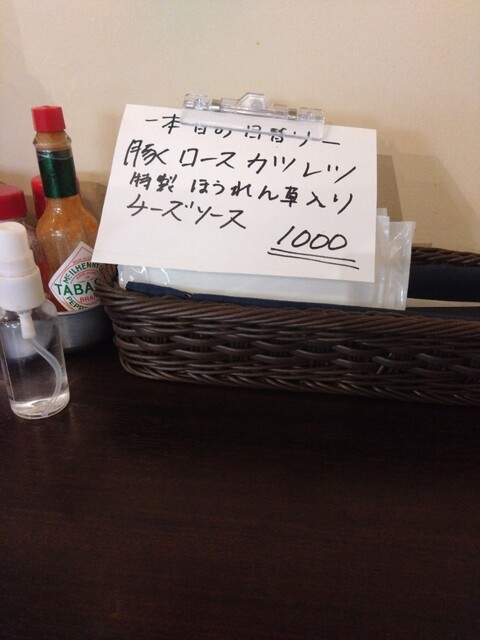 ー本日の日替りー
豚ロースカツレツ
特製ほうれん草入り
チーズソース
1000
McILHENNY CO
TABAS
BRAND
PEPPER